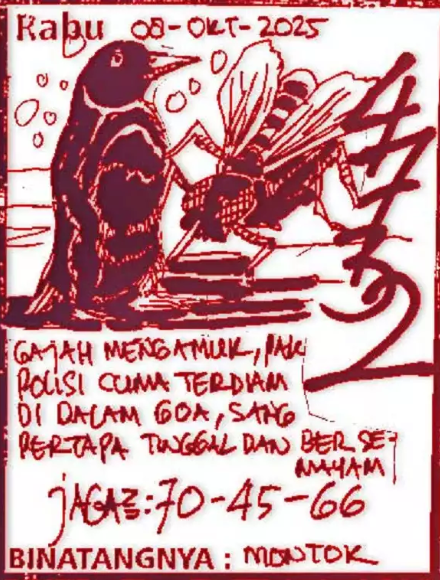 Rabu 08-OKT-2025
GAJAH MENGAMUK, PAK
POLISI CUMA TERDIAM
DI DALAM GOA, SANG
PERTAPA TINGGAL DAN BERSE-
MAYAM
JAGA2:70-45-66
BINATANGNYA : MONTOK